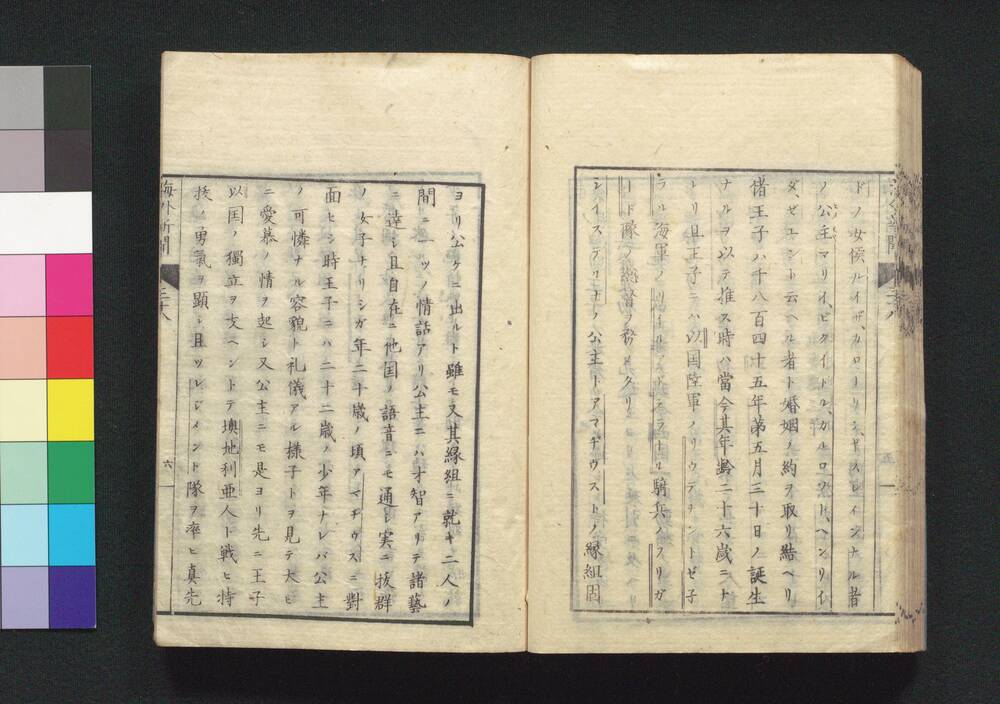 ドノ女侯ルイザ、カローリン、ギスレインナル者
ノ公主マリイ、ビクイトル、カルロット、ヘンリイ
ダゼエント云ヘル者ト婚姻ノ約ヲ取リ結ベリ
偖王子ハ千八百四十五年第五月三十日ノ誕生
ナルヲ以テ推ス時ハ當今其年齢二十六歳ニト
レリ且王子ニハ以国陸軍ノリウテナントゼ子
ラル海軍ノ
騎兵
ード隊ノ総督ヲ務
シイスアリナノ公主トアマヂウストノ縁組固
ヨリ公ケニ出ルト雖モ又其縁組ニ就キ二人ノ
間ニ一ツノ情話アリ公主ニハ才智アリテ諸藝
ニ達シ且自在ニ他国ノ語音ニモ通シ実ニ抜群
ノ女子ナリシガ年二十歳ノ頃アマヂウスニ對
面セシ時王子ニハ二十二歳ノ少年ナレバ公主
ノ可憐ナル容貌ト礼儀アル様子トヲ見テ大ヒ
ニ愛慕ノ情ヲ起シ又公主ニモ是ヨリ先ニ王子
以国ノ獨立ヲ支ヘントテ墺地利亜人ト戦ヒ特
抜ノ勇氣ヲ顕シ且ツレジメント隊ヲ率ヒ真先
海外新聞
三十八
六